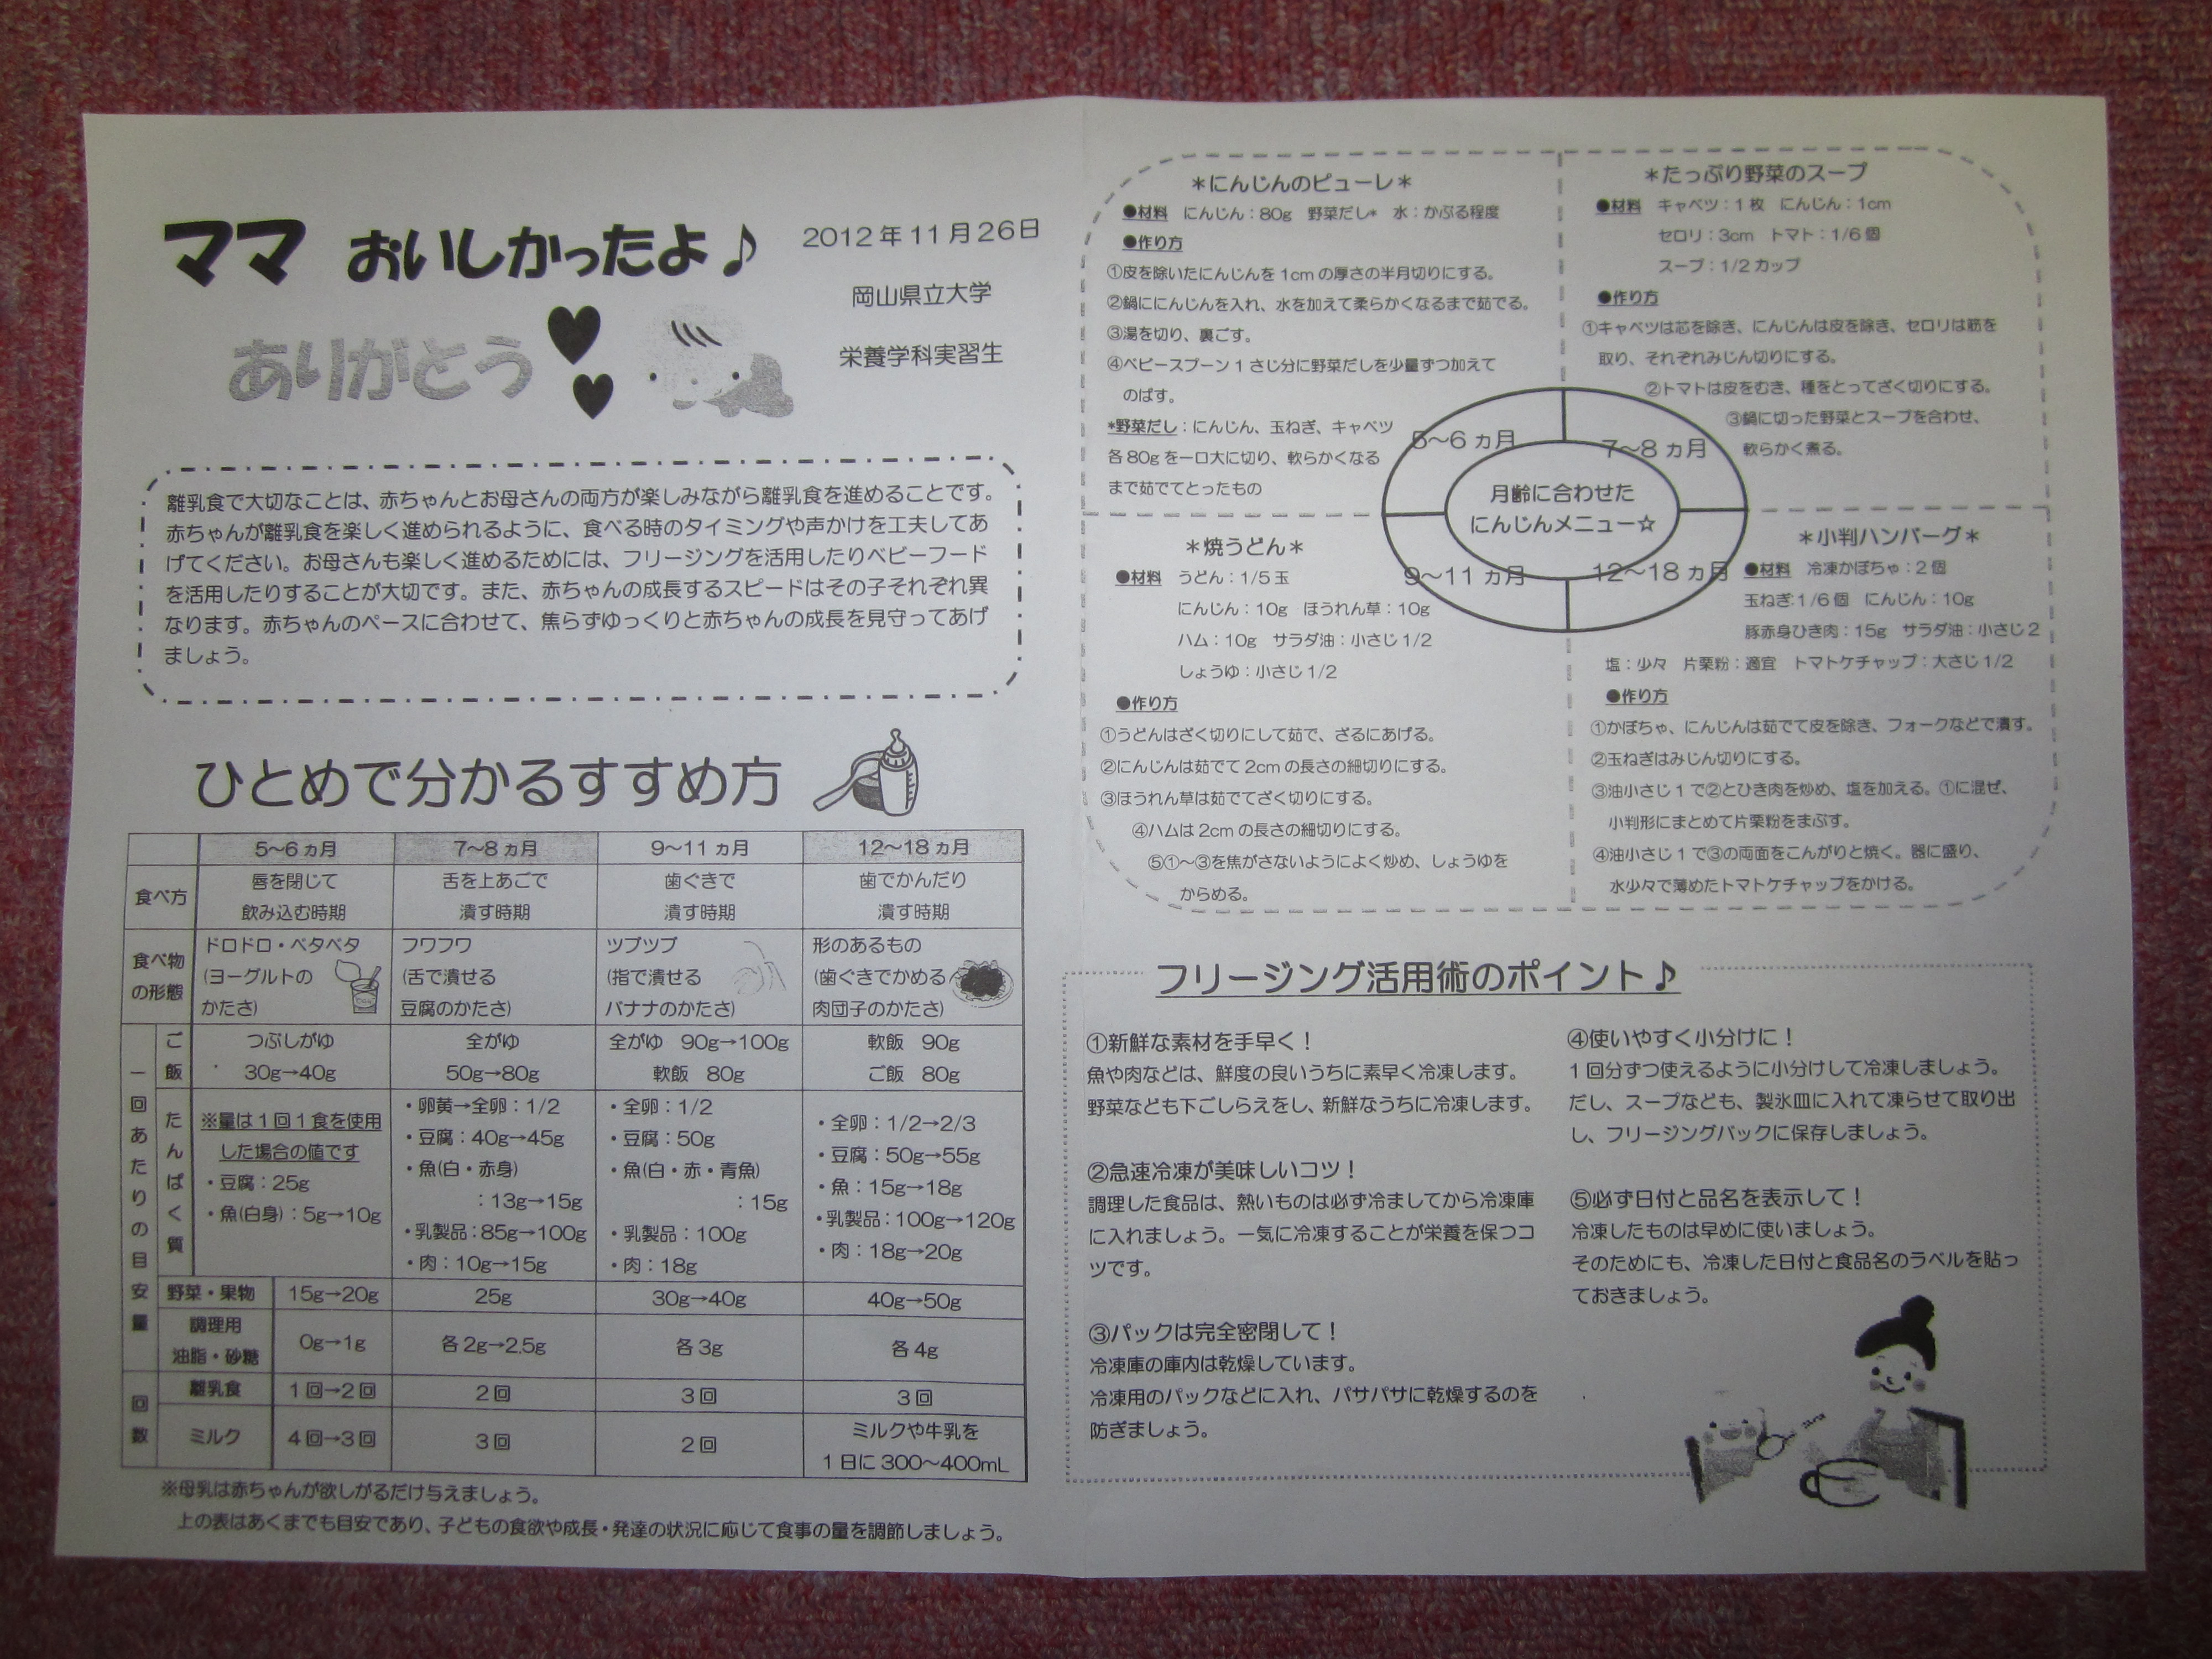 ママ おいしかったよ♪
ありがとう
2012年11月26日
岡山県立大学
栄養学科実習生
離乳食で大切なことは、赤ちゃんとお母さんの両方が楽しみながら離乳食を進めることです。
赤ちゃんが離乳食を楽しく進められるように、食べる時のタイミングや声かけを工夫してあ
げてください。お母さんも楽しく進めるためには、フリージングを活用したりベビーフード
を活用したりすることが大切です。また、赤ちゃんの成長するスピードはその子それぞれ異
なります。赤ちゃんのペースに合わせて、焦らずゆっくりと赤ちゃんの成長を見守ってあげ
ましょう。
ひとめで分かるすすめ方
5～6ヵ月 7～8ヵ月 9～11ヵ月 12～18ヵ月
食べ方
唇を閉じて
飲み込む時期
舌を上あごで
潰す時期
歯ぐきで
潰す時期
歯でかんだり
潰す時期
食べ物
の形態
ドロドロ・ベタベタ
(ヨーグルトの
かたさ)
フワフワ
(舌で潰せる
豆腐のかたさ)
ツブツブ
(指で潰せる
バナナのかたさ)
形のあるもの
(歯ぐきでかめる
肉団子のかたさ)
一回あたりの目安量
ご飯
つぶしがゆ
30g→40g
全がゆ
50g→80g
全がゆ 90g→100g
軟飯 80g
軟飯 90g
ご飯 80g
たんぱく質
※量は1回1食を使用
した場合の値です
・豆腐：25g
・魚(白身)：5g→10g
・卵黄→全卵：1/2
・豆腐：40g→45g
・魚(白・赤身)
：13g→15g
・乳製品：85g→100g
・肉：10g→15g
・全卵：1/2
・豆腐：50g
・魚(白・赤・青魚)
：15g
・乳製品：100g
・肉：18g
・全卵：1/2→2/3
・豆腐：50g→55g
・魚：15g→18g
・乳製品：100g→120g
・肉：18g→20g
野菜・果物 15g→20g 25g 30g→40g 40g→50g
調理用
油脂・砂糖
0g→1g 各2g→2.5g 各3g 各4g
回数
離乳食 1回→2回 2回 3回 3回
ミルク 4回→3回 3回 2回
ミルクや牛乳を
1日に300～400mL
※母乳は赤ちゃんが欲しがるだけ与えましょう。
上の表はあくまでも目安であり、子どもの食欲や成長・発達の状況に応じて食事の量を調節しましょう。
＊にんじんのピューレ＊
●材料 にんじん：80g 野菜だし* 水：かぶる程度
●作り方
①皮を除いたにんじんを1cmの厚さの半月切りにする。
②鍋ににんじんを入れ、水を加えて柔らかくなるまで茹でる。
③湯を切り、裏ごす。
④ベビースプーン1さじ分に野菜だしを少量ずつ加えて
のばす。
*野菜だし：にんじん、玉ねぎ、キャベツ
各80gを一口大に切り、軟らかくなる
まで茹でてとったもの
＊たっぷり野菜のスープ
●材料 キャベツ：1枚 にんじん：1cm
セロリ：3cm トマト：1/6個
スープ：1/2カップ
●作り方
①キャベツは芯を除き、にんじんは皮を除き、セロリは筋を
取り、それぞれみじん切りにする。
②トマトは皮をむき、種をとってざく切りにする。
③鍋に切った野菜とスープを合わせ、
軟らかく煮る。
5～6ヵ月
7～8ヵ月
月齢に合わせた
にんじんメニュー☆
9～11ヵ月
12～18ヵ月
＊焼うどん＊
●材料 うどん：1/5玉
にんじん：10g ほうれん草：10g
ハム：10g サラダ油：小さじ1/2
しょうゆ：小さじ1/2
●作り方
①うどんはざく切りにして茹で、ざるにあげる。
②にんじんは茹でて2cmの長さの細切りにする。
③ほうれん草は茹でてざく切りにする。
④ハムは2cmの長さの細切りにする。
⑤①～③を焦がさないようによく炒め、しょうゆを
からめる。
＊小判ハンバーグ＊
●材料 冷凍かぼちゃ：2個
玉ねぎ:1/6個 にんじん：10g
豚赤身ひき肉：15g サラダ油：小さじ2
塩：少々 片栗粉：適宜 トマトケチャップ：大さじ1/2
●作り方
①かぼちゃ、にんじんは茹でて皮を除き、フォークなどで潰す。
②玉ねぎはみじん切りにする。
③油小さじ1で②とひき肉を炒め、塩を加える。①に混ぜ、
小判形にまとめて片栗粉をまぶす。
④油小さじ1で③の両面をこんがりと焼く。器に盛り、
水少々で薄めたトマトケチャップをかける。
フリージング活用術のポイント♪
①新鮮な素材を手早く！
魚や肉などは、鮮度の良いうちに素早く冷凍します。
野菜なども下ごしらえをし、新鮮なうちに冷凍します。
②急速冷凍が美味しいコツ！
調理した食品は、熱いものは必ず冷ましてから冷凍庫
に入れましょう。一気に冷凍することが栄養を保つコ
ツです。
③パックは完全密閉して！
冷凍庫の庫内は乾燥しています。
冷凍用のパックなどに入れ、パサパサに乾燥するのを
防ぎましょう。
④使いやすく小分けに！
1回分ずつ使えるように小分けして冷凍しましょう。
だし、スープなども、製氷皿に入れて凍らせて取り出
し、フリージングパックに保存しましょう。
⑤必ず日付と品名を表示して！
冷凍したものは早めに使いましょう。
そのためにも、冷凍した日付と食品名のラベルを貼っ
ておきましょう。